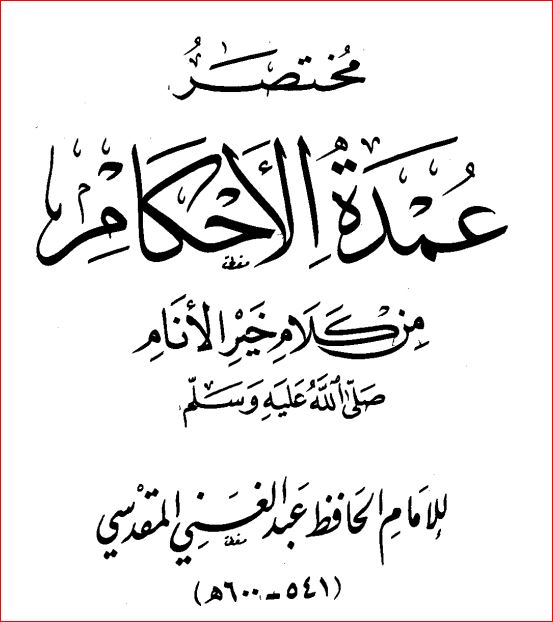 مُختصرُ
عُمْدَةُ الأَحْكَامِ
مِنْ كَلَامِ خَيْرِ الأَنَامِ
صَلَّى اللَّهُ عَلَيْهِ وَسَلَّم
لِلإمَامِ الحَافِظ عَبد الغَنِي المقدْسِي
(٥٤١ - ٦٠٠ هـ)